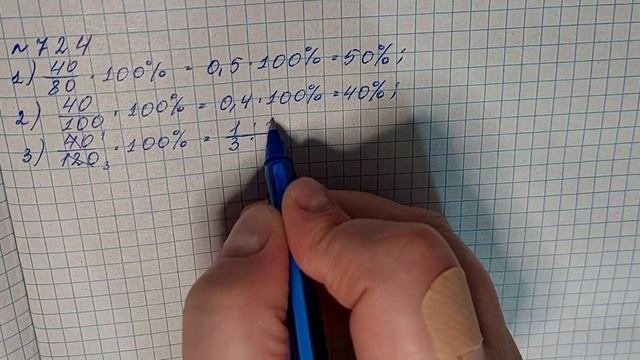 №724
1) 40/80 · 100% = 0,5 · 100% = 50%;
2) 40/100 · 100% = 0,4 · 100% = 40%;
3) 40¹/120₃ · 100% = 1/3 ·